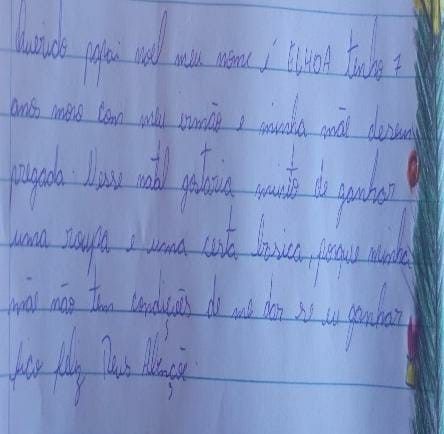 Querido papai noel meu nome é ELHOA tenho 7
anos moro com meu irmão e minha mãe desem
pregada. Nesse natal gostaria muito de ganhar
uma roupa e uma cesta básica, porque minha
mãe não tem condições de me dar se eu ganhar
fico feliz Deus Abençõe.